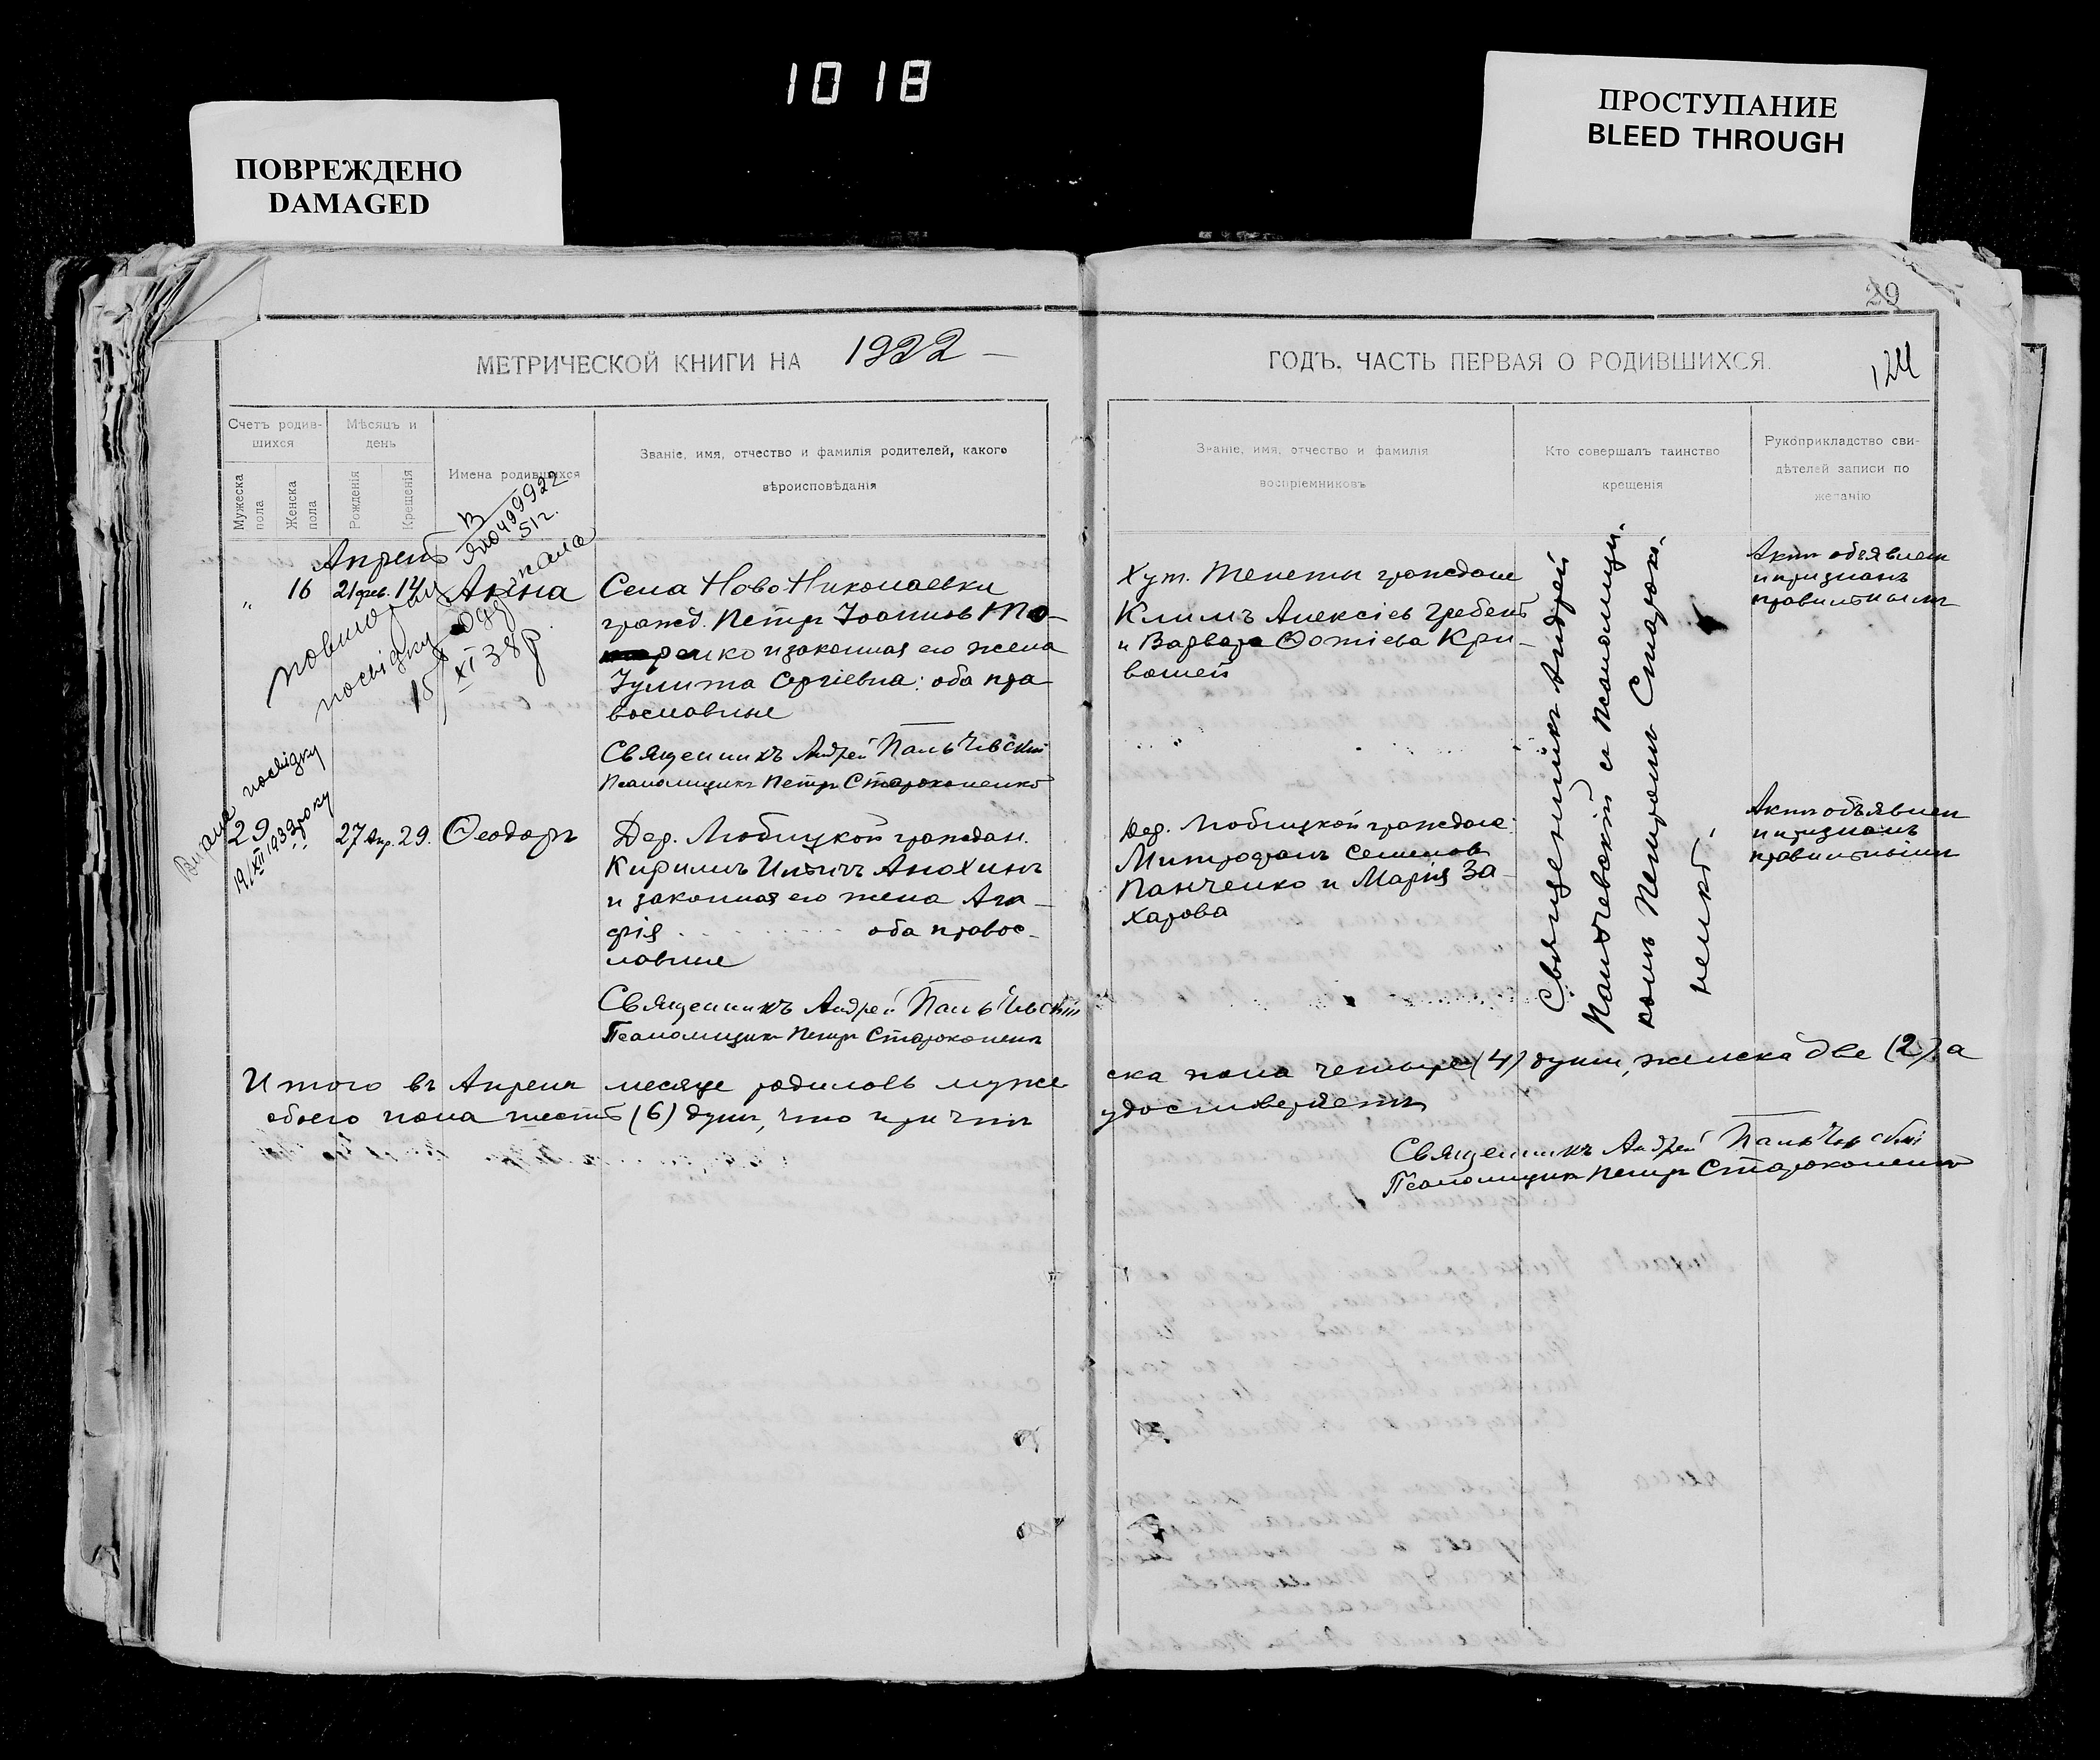 1018
ПОВРЕЖДЕНО
DAMAGED
ПРОСТУПАНИЕ
BLEED THROUGH
29
124
МЕТРИЧЕСКОЙ КНИГИ НА 1922
ГОДЪ. ЧАСТЬ ПЕРВАЯ О РОДИВШИХСЯ.
Счетъ родив-
шихся
Мужеска пола
Женска пола
Мѣсяцъ и
день
Рожденія
Крещенія
Имена родившихся
Званіе, имя, отчество и фамилія родителей, какого
вѣроисповѣданія
Званіе, имя, отчество и фамилія
воспріемниковъ
Кто совершалъ таинство
крещенія
Рукоприкладство сви-
дѣтелей записи по
желанію
Апрель
" 16 21 фев. 14 Анна
51 г.
посвідку
15/XI 38 р
Села Ново Николаевки
гражд. Петръ Іоаннов
и законная его жена
Іулита Сергіевна: оба пра
вославные
Священникъ Андрей Пальчевскій
Псаломщикъ Петръ Староконенко
Хут. Тенеты граждане
Климъ Алексіев Гребень
и Варвара Фотіева Кри-
вошей
Актъ объявлен
и признанъ
правильнымъ
Видана посвідку
19/XII 1939 року
29 27 Апр. 29. Ѳеодоръ
Дер. Любицкой граждан.
Кирилъ Ильичъ Анохинъ
и законная его жена Ага-
фія оба правос-
лавные
Священникъ Андрей Пальчевскій
Псаломщикъ Петръ Староконен
Дер. Любицкой граждане:
Митрофанъ Семенов
Панченко и Марія За-
харова
Актъ объявлен
и признанъ
правильнымъ
Священникъ Андрей
Пальчевскій с Псаломщи-
комъ Петромъ Староко-
ненко
Итого въ Апреле месяце родилось муже
ска пола четыре (4) души, женска две (2) а
обоего пола шесть (6) душ, что причтъ
удостоверяетъ
Священникъ Андрей Пальчевскій
Псаломщикъ Петръ Староконенко